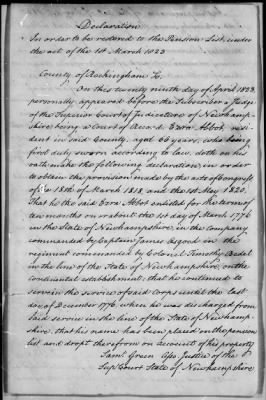 Declaration
In order to be restored to the Pension List under
the act of the 1st March 1823
County of Rockingham
On this twenty ninth day of April 1823
personally appeared before the Subscriber a Judge
of the Superior Court of Judicature of Newhamp-
shire being a Court of Record Ezra Abbot resi-
dent in said County aged 66 years, who being
first duly sworn according to law, doth on his
oath make the following declaration in order
to obtain the provision made by the acts of congress
of the 18th of March 1818 and the 1st May 1820.
That he the said Ezra Abbot enlisted for the term of
ten months on or about the 1st day of March 1776
in the State of Newhampshire, in the Company
commanded by Captain James in the
regiment commanded by Colonel Timothy Bedel
in the line of the State of Newhampshire, on the
continental establishment, that he continued to
serve in the service aforesaid Corps until the last
day of December 1776, when he was discharged from
said service in the line of the State of Newhamp-
shire, that his name has been placed on the pension
list and dropt therefrom on account of his property
Saml Green Justice of the
Sup Court State of Newhampshire